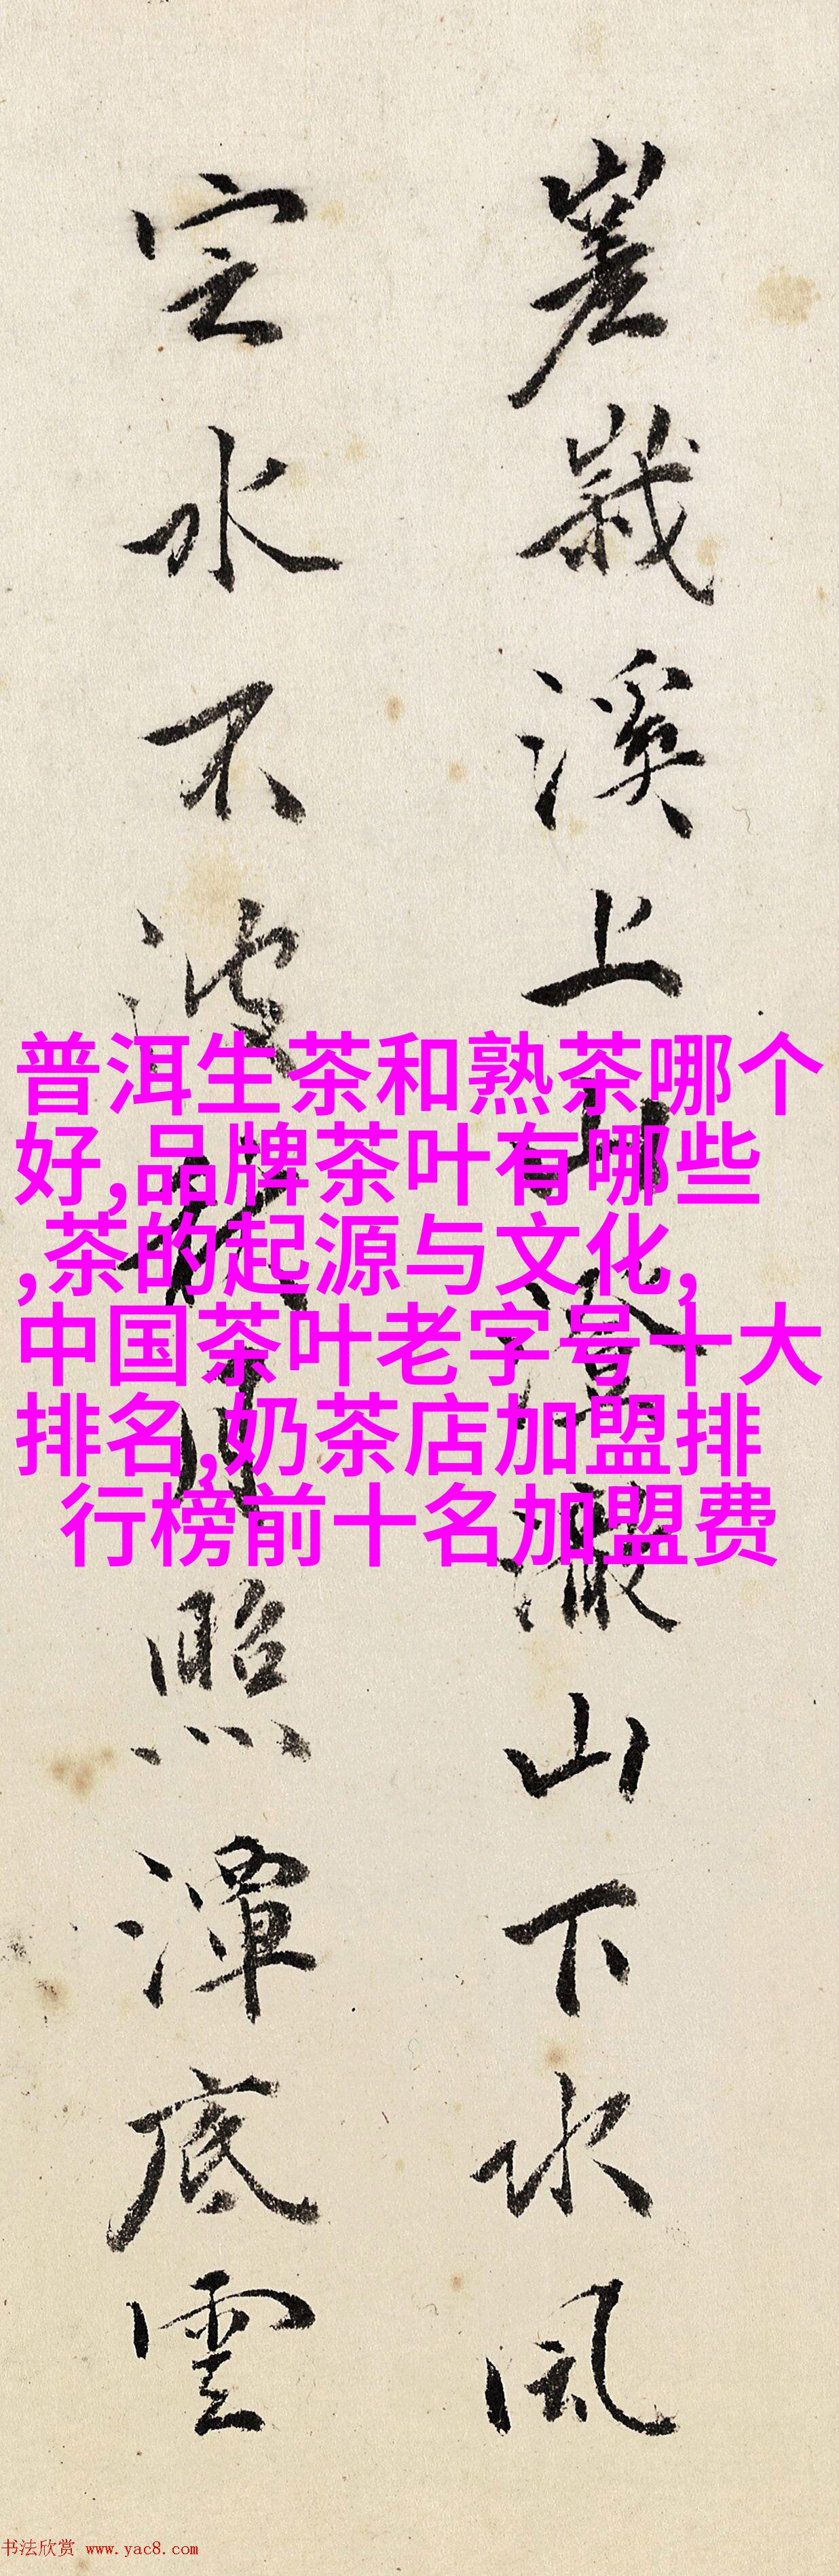 嵳峩溪上山澄澈山下水風
定水不波秋月照潭底雲
普洱生茶和熟茶哪个
好,品牌茶叶有哪些
,茶的起源与文化,
中国茶叶老字号十大
排名,奶茶店加盟排
行榜前十名加盟费
书法欣赏 www.yac8.com